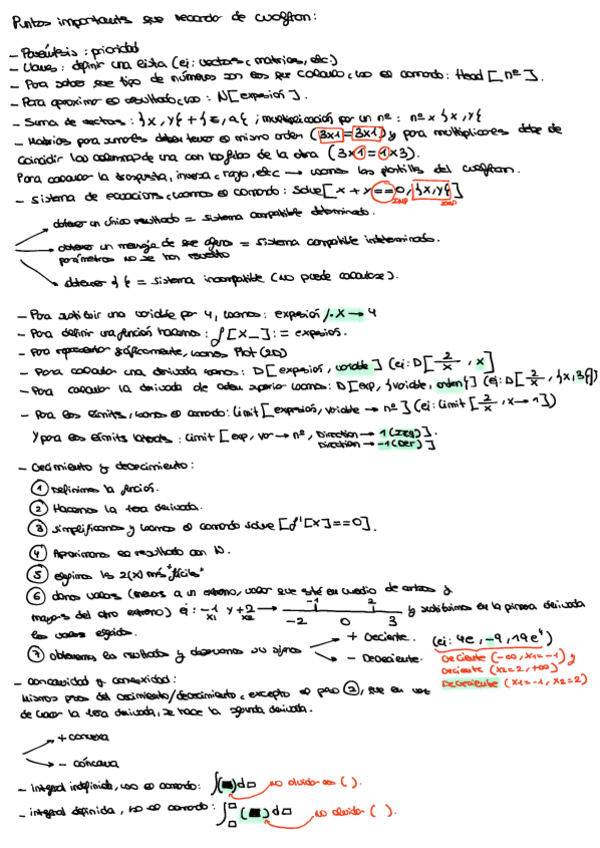 Puntos importantes que recordar de wolfram:
- Paréntesis: prioridad
- Llaves: definir una lista (ej: vectores, matrices, etc)
- Para saber que tipo de números son los que calculo, uso el comando: Head [nº].
- Para aproximar el resultado, uso: N[expresión].
- Suma de vectores: {x,y} + {z,a}; multiplicación por un nº: nº x {x,y}
- Matrices para sumarles deben tener el mismo orden (3x1 = 3x1) y para multiplicarles debe de
coincidir las columnas de una con las filas de la otra (3x1 = 1x3).
Para calcular la traspuesta, inversa, rango, etc → usamos las plantillas del wolfram.
- Sistema de ecuaciones, usamos el comando: Solve[x + y == 0, {x,y}]
obtener un único resultado = sistema compatible determinado.
obtener un mensaje de que algunos = sistema compatible indeterminado.
parámetros no se han resuelto
obtener { } = sistema incompatible (no puede calcularse).
- Para sustituir una variable por 4, usamos: expresión /. X → 4
- Para definir una función hacemos: f[x_] := expresión.
- Para representar gráficamente, usamos Plot (2D)
- Para calcular una derivada usamos: D[expresión, variable] (ej: D[2/x, x]
- Para calcular la derivada de orden superior usamos: D[exp, {variable, orden}] (ej: D[2/x, {x,3}])
- Para los límites, usamos el comando: Limit [expresión, variable → nº] (ej: Limit [2/x, x → 1])
Y para los límites laterales: Limit [exp, var → nº, Direction → 1 (izq)].
Direction → -1 (der)]
- Crecimiento y decrecimiento:
① Definimos la función.
② Hacemos la 1era derivada.
③ simplificamos y usamos el comando solve [f'[x] == 0].
④ Aproximamos el resultado con N.
⑤ elegimos los 2(x) más "fáciles"
⑥ damos valores (menor a un extremo, valor que esté en medio de ambos y
mayor del otro extremo) ej: -1 y +2 →
x1 x2
-1 2
-2 0 3
y sustituimos en la primera derivada
los valores elegidos.
⑦ obtenemos los resultados y observamos su signo
+ Creciente. (ej: 4e, -9, 19e⁴)
- Decreciente.
Creciente (-∞, x1=-1) y
creciente (x2=2, +∞)
Decreciente (x1=-1, x2=2)
- concavidad y convexidad:
Mismos pasos del crecimiento/decrecimiento, excepto el paso ②, que en vez
de hacer la 1era derivada, se hace la segunda derivada.
+ convexa
- cóncava
- Integral indefinida, uso el comando: ∫(■)d□ no olvidar los ( ).
- integral definida, uso el comando: ∫□□ (■)d□ no olvidar ( ).